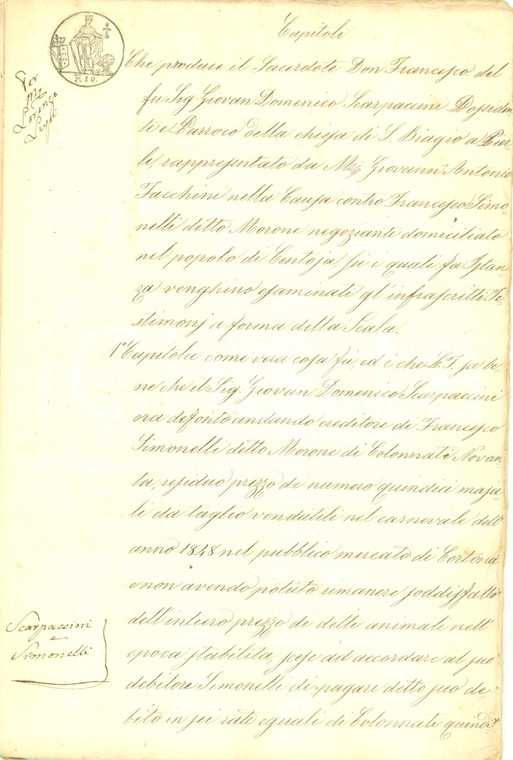 Capitoli
Che produce il Sacerdote Don Francesco del
fu Sig Giovan Domenico Scarpaccini Possident
te e Parroco della chiesa di S. Biagio a Pier
le, rappresentato da Mr Giovann' Antonio
Facchini nella Causa contro Francesco Simo
nelli ditto Morone negoziante domiciliato
nel popolo di Centoja su i quali fa Istan
za venghino esaminati gl'infrascritti Te
stimonj a forma della Scala.
1° Capitola come vera cosa fu, ed è che L. T. sa be
ne che il Sig. Giovan Domenico Scarpaccini
ora defonto andando creditore di Francesco
Simonelli ditto Morone di Colonnati Novan
ta, residuo prezzo di numero quindici maja
li da taglio venduteli nel carnevale dell'
anno 1848 nel pubblico mercato di Cortona
e non avendo potuto rimanere soddisfatto
dell'intiero prezzo di detti animali nell'
epoca stabilita, scese ad accordare al suo
debitore Simonelli di pagare detto suo de
bito in sei rate eguali di Colonnati quindi
Scarpaccini
e
Simonelli